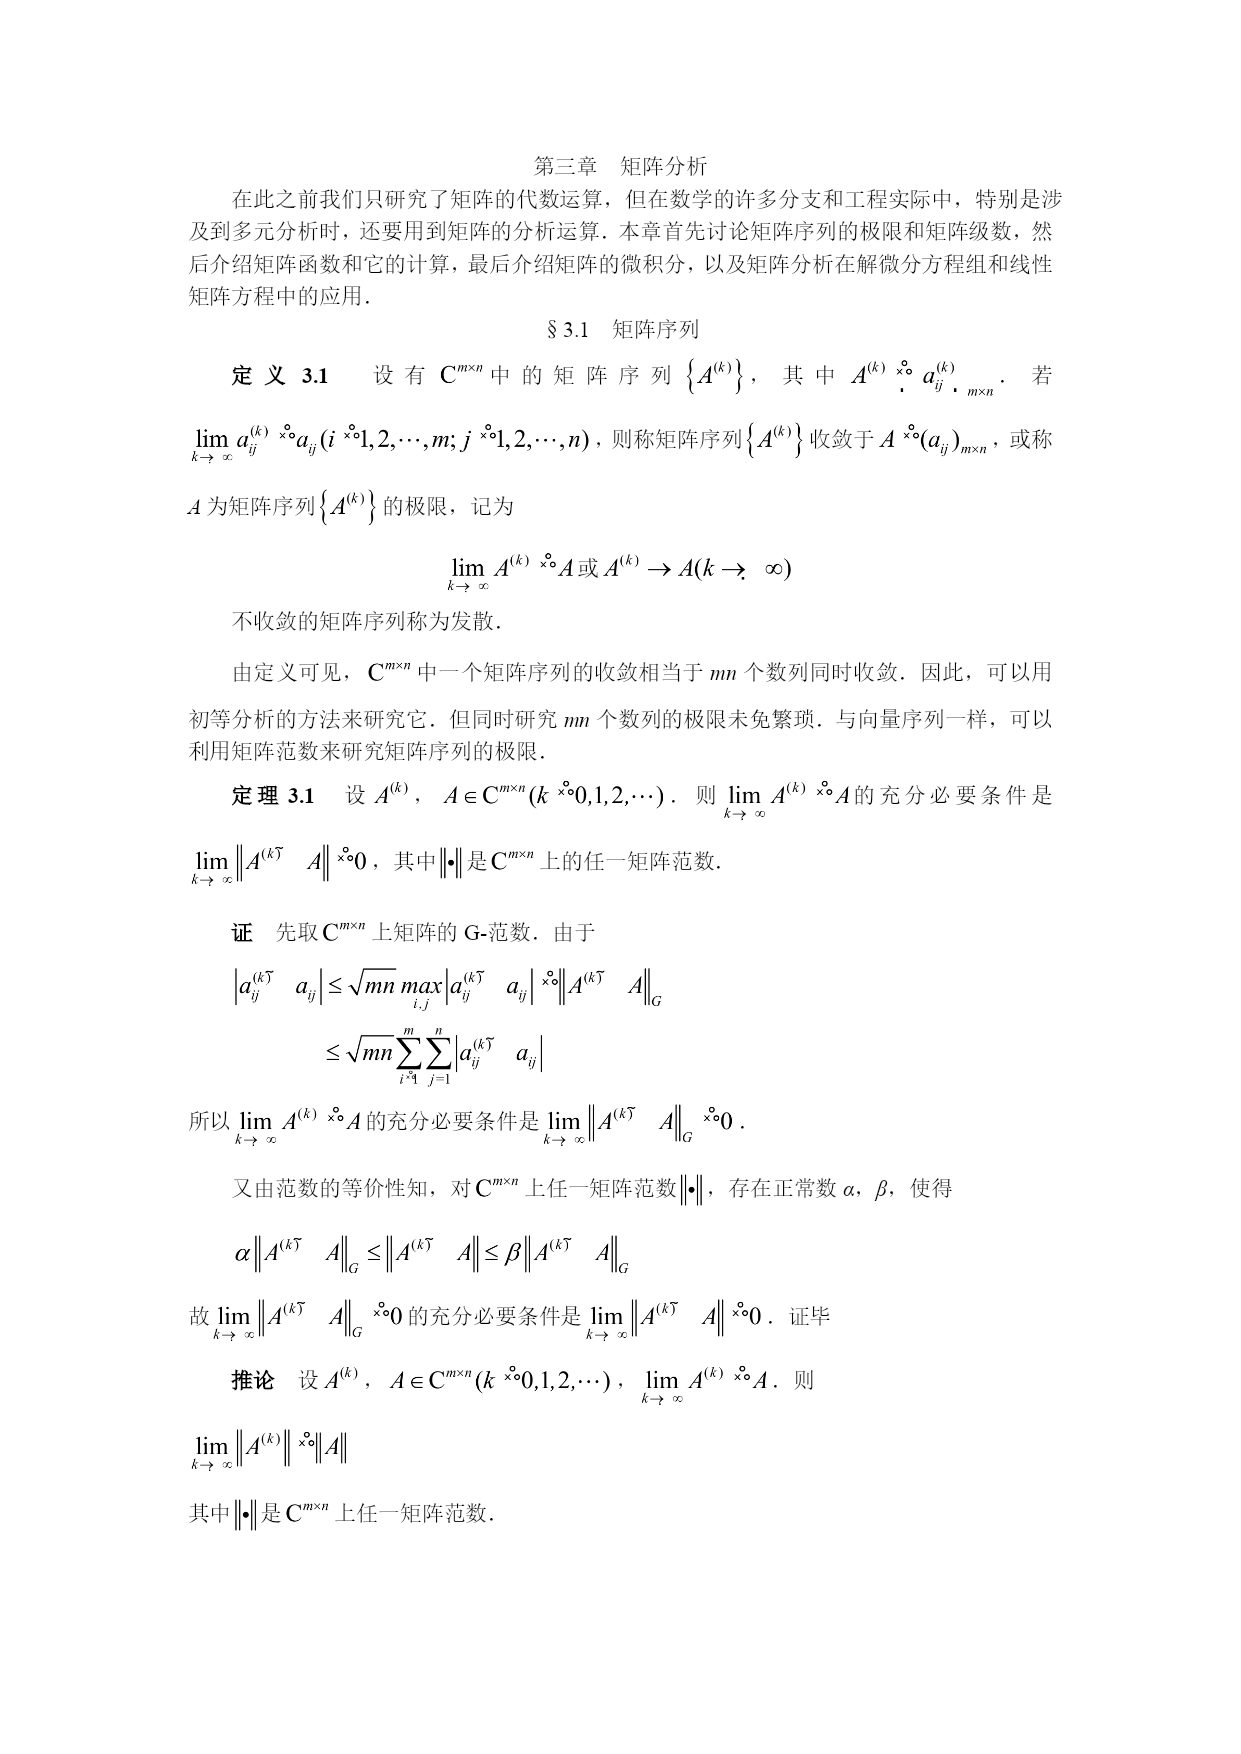 第三章 矩阵分析
在此之前我们只研究了矩阵的代数运算，但在数学的许多分支和工程实际中，特别是涉
及到多元分析时，还要用到矩阵的分析运算．本章首先讨论矩阵序列的极限和矩阵级数，然
后介绍矩阵函数和它的计算，最后介绍矩阵的微积分，以及矩阵分析在解微分方程组和线性
矩阵方程中的应用．
§3.1 矩阵序列
定义 3.1 设有 C^{m×n} 中的矩阵序列 {A^{(k)}}，其中 A^{(k)} = (a_{ij}^{(k)})_{m×n}．若
lim_{k→∞} a_{ij}^{(k)} = a_{ij} (i = 1,2,⋯,m; j = 1,2,⋯,n)，则称矩阵序列 {A^{(k)}} 收敛于 A = (a_{ij})_{m×n}，或称
A 为矩阵序列 {A^{(k)}} 的极限，记为
lim_{k→∞} A^{(k)} = A 或 A^{(k)} → A(k → ∞)
不收敛的矩阵序列称为发散．
由定义可见，C^{m×n} 中一个矩阵序列的收敛相当于 mn 个数列同时收敛．因此，可以用
初等分析的方法来研究它．但同时研究 mn 个数列的极限未免繁琐．与向量序列一样，可以
利用矩阵范数来研究矩阵序列的极限．
定理 3.1 设 A^{(k)}，A∈C^{m×n} (k = 0,1,2,⋯)．则 lim_{k→∞} A^{(k)} = A 的充分必要条件是
lim_{k→∞} ‖A^{(k)} − A‖ = 0，其中‖•‖是 C^{m×n} 上的任一矩阵范数．
证 先取 C^{m×n} 上矩阵的 G-范数．由于
|a_{ij}^{(k)} − a_{ij}| ≤ √mn max_{i,j} |a_{ij}^{(k)} − a_{ij}| = ‖A^{(k)} − A‖_G
≤ √mn ∑_{i=1}^{m} ∑_{j=1}^{n} |a_{ij}^{(k)} − a_{ij}|
所以 lim_{k→∞} A^{(k)} = A 的充分必要条件是 lim_{k→∞} ‖A^{(k)} − A‖_G = 0．
又由范数的等价性知，对 C^{m×n} 上任一矩阵范数‖•‖，存在正常数 α，β，使得
α‖A^{(k)} − A‖_G ≤ ‖A^{(k)} − A‖ ≤ β‖A^{(k)} − A‖_G
故 lim_{k→∞} ‖A^{(k)} − A‖_G = 0 的充分必要条件是 lim_{k→∞} ‖A^{(k)} − A‖ = 0．证毕
推论 设 A^{(k)}，A∈C^{m×n} (k = 0,1,2,⋯)，lim_{k→∞} A^{(k)} = A．则
lim_{k→∞} ‖A^{(k)}‖ = ‖A‖
其中‖•‖是 C^{m×n} 上任一矩阵范数．